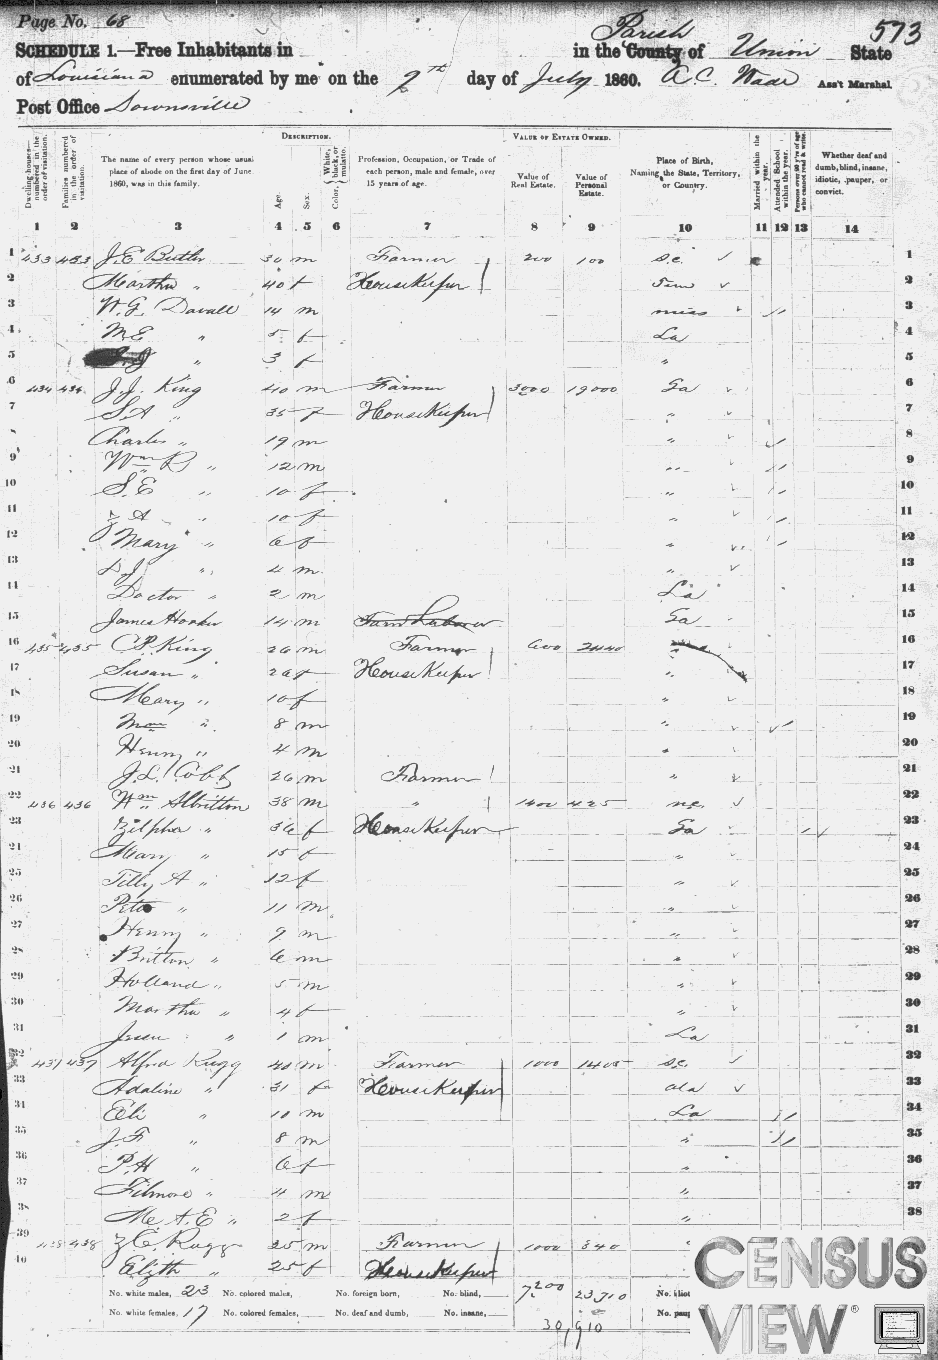 Page No. 68
573
SCHEDULE 1.—Free Inhabitants in in the County of Parish Union State
of Louisiana enumerated by me on the 7th day of July 1860. A.C. Wade Ass't Marshal.
Post Office Downsville
DESCRIPTION. VALUE OF ESTATE OWNED.
Dwelling-houses—numbered in the order of visitation.
Families numbered in the order of visitation.
The name of every person whose usual place of abode on the first day of June 1860, was in this family.
Age.
Sex
Color, White, black, or mulatto.
Profession, Occupation, or Trade of each person, male and female, over 15 years of age.
Value of Real Estate.
Value of Personal Estate.
Place of Birth, Naming the State, Territory, or Country.
Married within the year.
Attended School within the year.
Persons over 20 y'rs of age who cannot read & write.
Whether deaf and dumb, blind, insane, idiotic, pauper, or convict.
1 2 3 4 5 6 7 8 9 10 11 12 13 14
1 433 433 J.E Butler 30 m Farmer 200 100 S.C. 1
2 Martha " 40 f HouseKeeper Tenn 2
3 W.G. 14 m miss 3
4 M.E " 5 f La 4
5 " 3 f " 5
6 434 434 J.J. King 40 m Farmer 3000 19000 Ga 6
7 S.A " 35 f HouseKeeper " 7
8 Charles " 19 m " 8
9 Wm R " 12 m " 9
10 S.E " 10 f " 10
11 Z A " 10 f " 11
12 Mary " 6 f " 12
13 " 4 m " 13
14 Doctor " 2 m La 14
15 James Hooker 14 m Farm Laborer Ga 15
16 435 435 C.P. King 26 m Farmer 600 2440 16
17 Susan " 26 f HouseKeeper " 17
18 Mary " 10 f 18
19 Wm " 8 m " 19
20 Henry " 4 m " 20
21 J.L. Cobb 26 m Farmer " 21
22 436 436 Wm Albritton 38 m " 1400 425 n.c. 22
23 Zilpha " 36 f HouseKeeper Ga 23
24 Mary " 15 f " 24
25 Tilly A " 12 f " 25
26 Peter " 11 m " 26
27 Henry " 9 m " 27
28 Britton " 6 m " 28
29 Holland " 5 m " 29
30 Martha " 4 f " 30
31 Jesse " 1 m La 31
32 437 437 Alfred Rugg 40 m Farmer 1000 1405 S.C. 32
33 Adaline " 31 f HouseKeeper ala 33
34 Eli " 10 m La 34
35 J.F " 8 m " 35
36 P.H " 6 f " 36
37 Filmore " 4 m " 37
38 M.A.E " 2 f " 38
39 438 438 Z.C. Rugg 25 m Farmer 1000 340 "
40 Elizth " 25 f HouseKeeper
No. white males, 23 No. colored males, No. foreign born, No. blind, 7200 23710 No. idiot
No. white females, 17 No. colored females, No. deaf and dumb, No. insane, No. paup
30,910
CENSUS
VIEW®